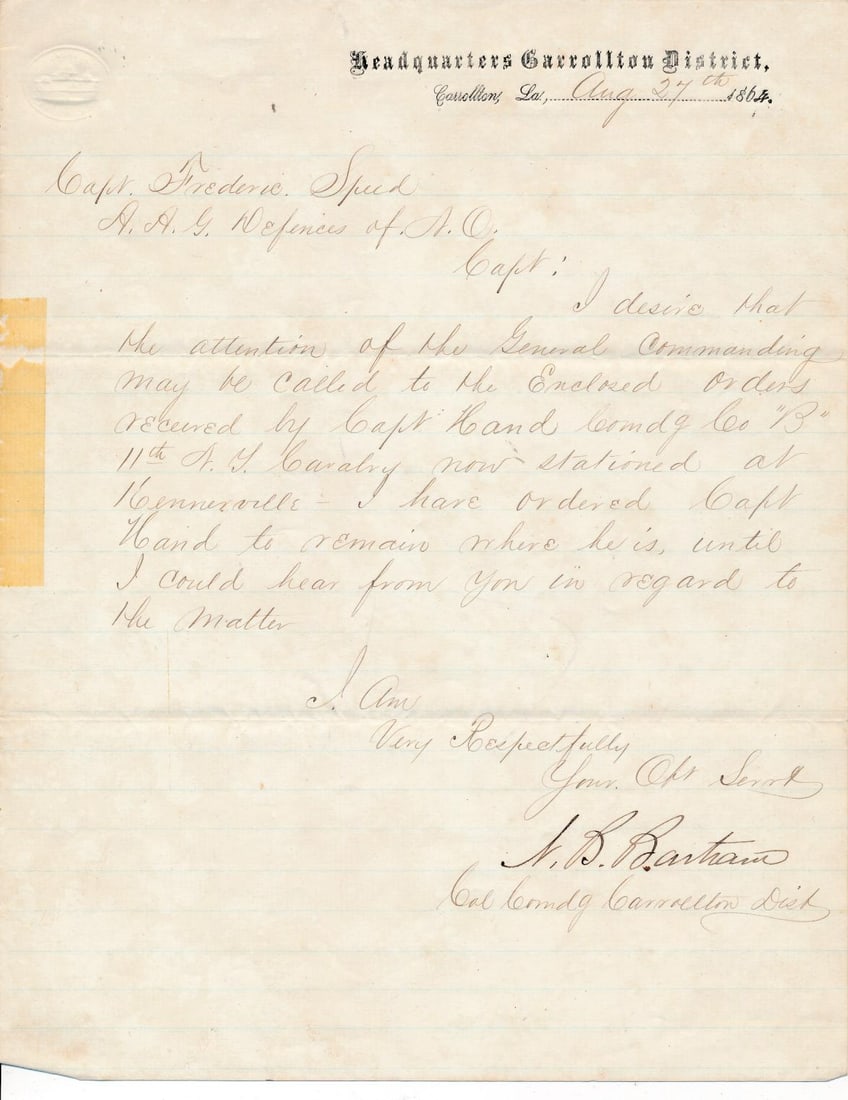 Headquarters Carrollton District,
Carrollton, La., Aug 27th 1864.
Capt. Frederic. Speed
A. A. G. Defences of. N. O.
Capt:
I desire that
the attention of the General Commanding
may be called to the Enclosed orders
received by Capt Hand Comdg Co "B"
11th N. Y. Cavalry now stationed at
Kennerville – I have ordered Capt
Hand to remain where he is, until
I could hear from you in regard to
the matter
I. Am
Very Respectfully
Your. Obt Servt
N. B. Bartram
Col Comdg Carrollton Dist